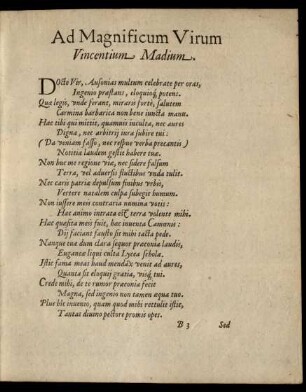 Ad Magnificum Virum
Vincentium Madium.
DOcto Vir, Ausonias multum celebrate per oras,
Ingenio præstans, eloquioq́; potens.
Quæ legis, vnde ferant, miraris fortè, salutem
Carmina barbarica non bene iuncta manu.
Hæc tibi qui mittit, quamuis inculta, nec aures
Digna, nec arbitrij iura subire tui:
(Da veniam fasso, nec respue verba precantis)
Notitia laudem gestit habere tuæ.
Non huc me regione viæ, nec sidere falsum
Terra, vel aduersis fluctibus vnda tulit.
Nec caris patriæ depulsum finibus vrbis,
Vertere natalem culpa subegit humum.
Non iussere mori contraria numina votis:
Hæc animo intrata est terra volente mihi.
Hæc quæsita meis fuit, hæc inuenta Camœnis:
Dij faciant fausto sit mihi tacta pede.
Nanque tua dum clara sequor præconia laudis,
Euganea liqui culta Lycea scholæ.
Istic fama meas haud mendax venit ad aures,
Quanta sit eloquij gratia, visq́; tui.
Crede mihi, de te rumor præconia fecit
Magna, sed ingenio non tamen æqua tuo.
Plus hîc inuento, quam quod mihi rettulit istic,
Tantas diuino pectore promis opes.
B 3 Sed